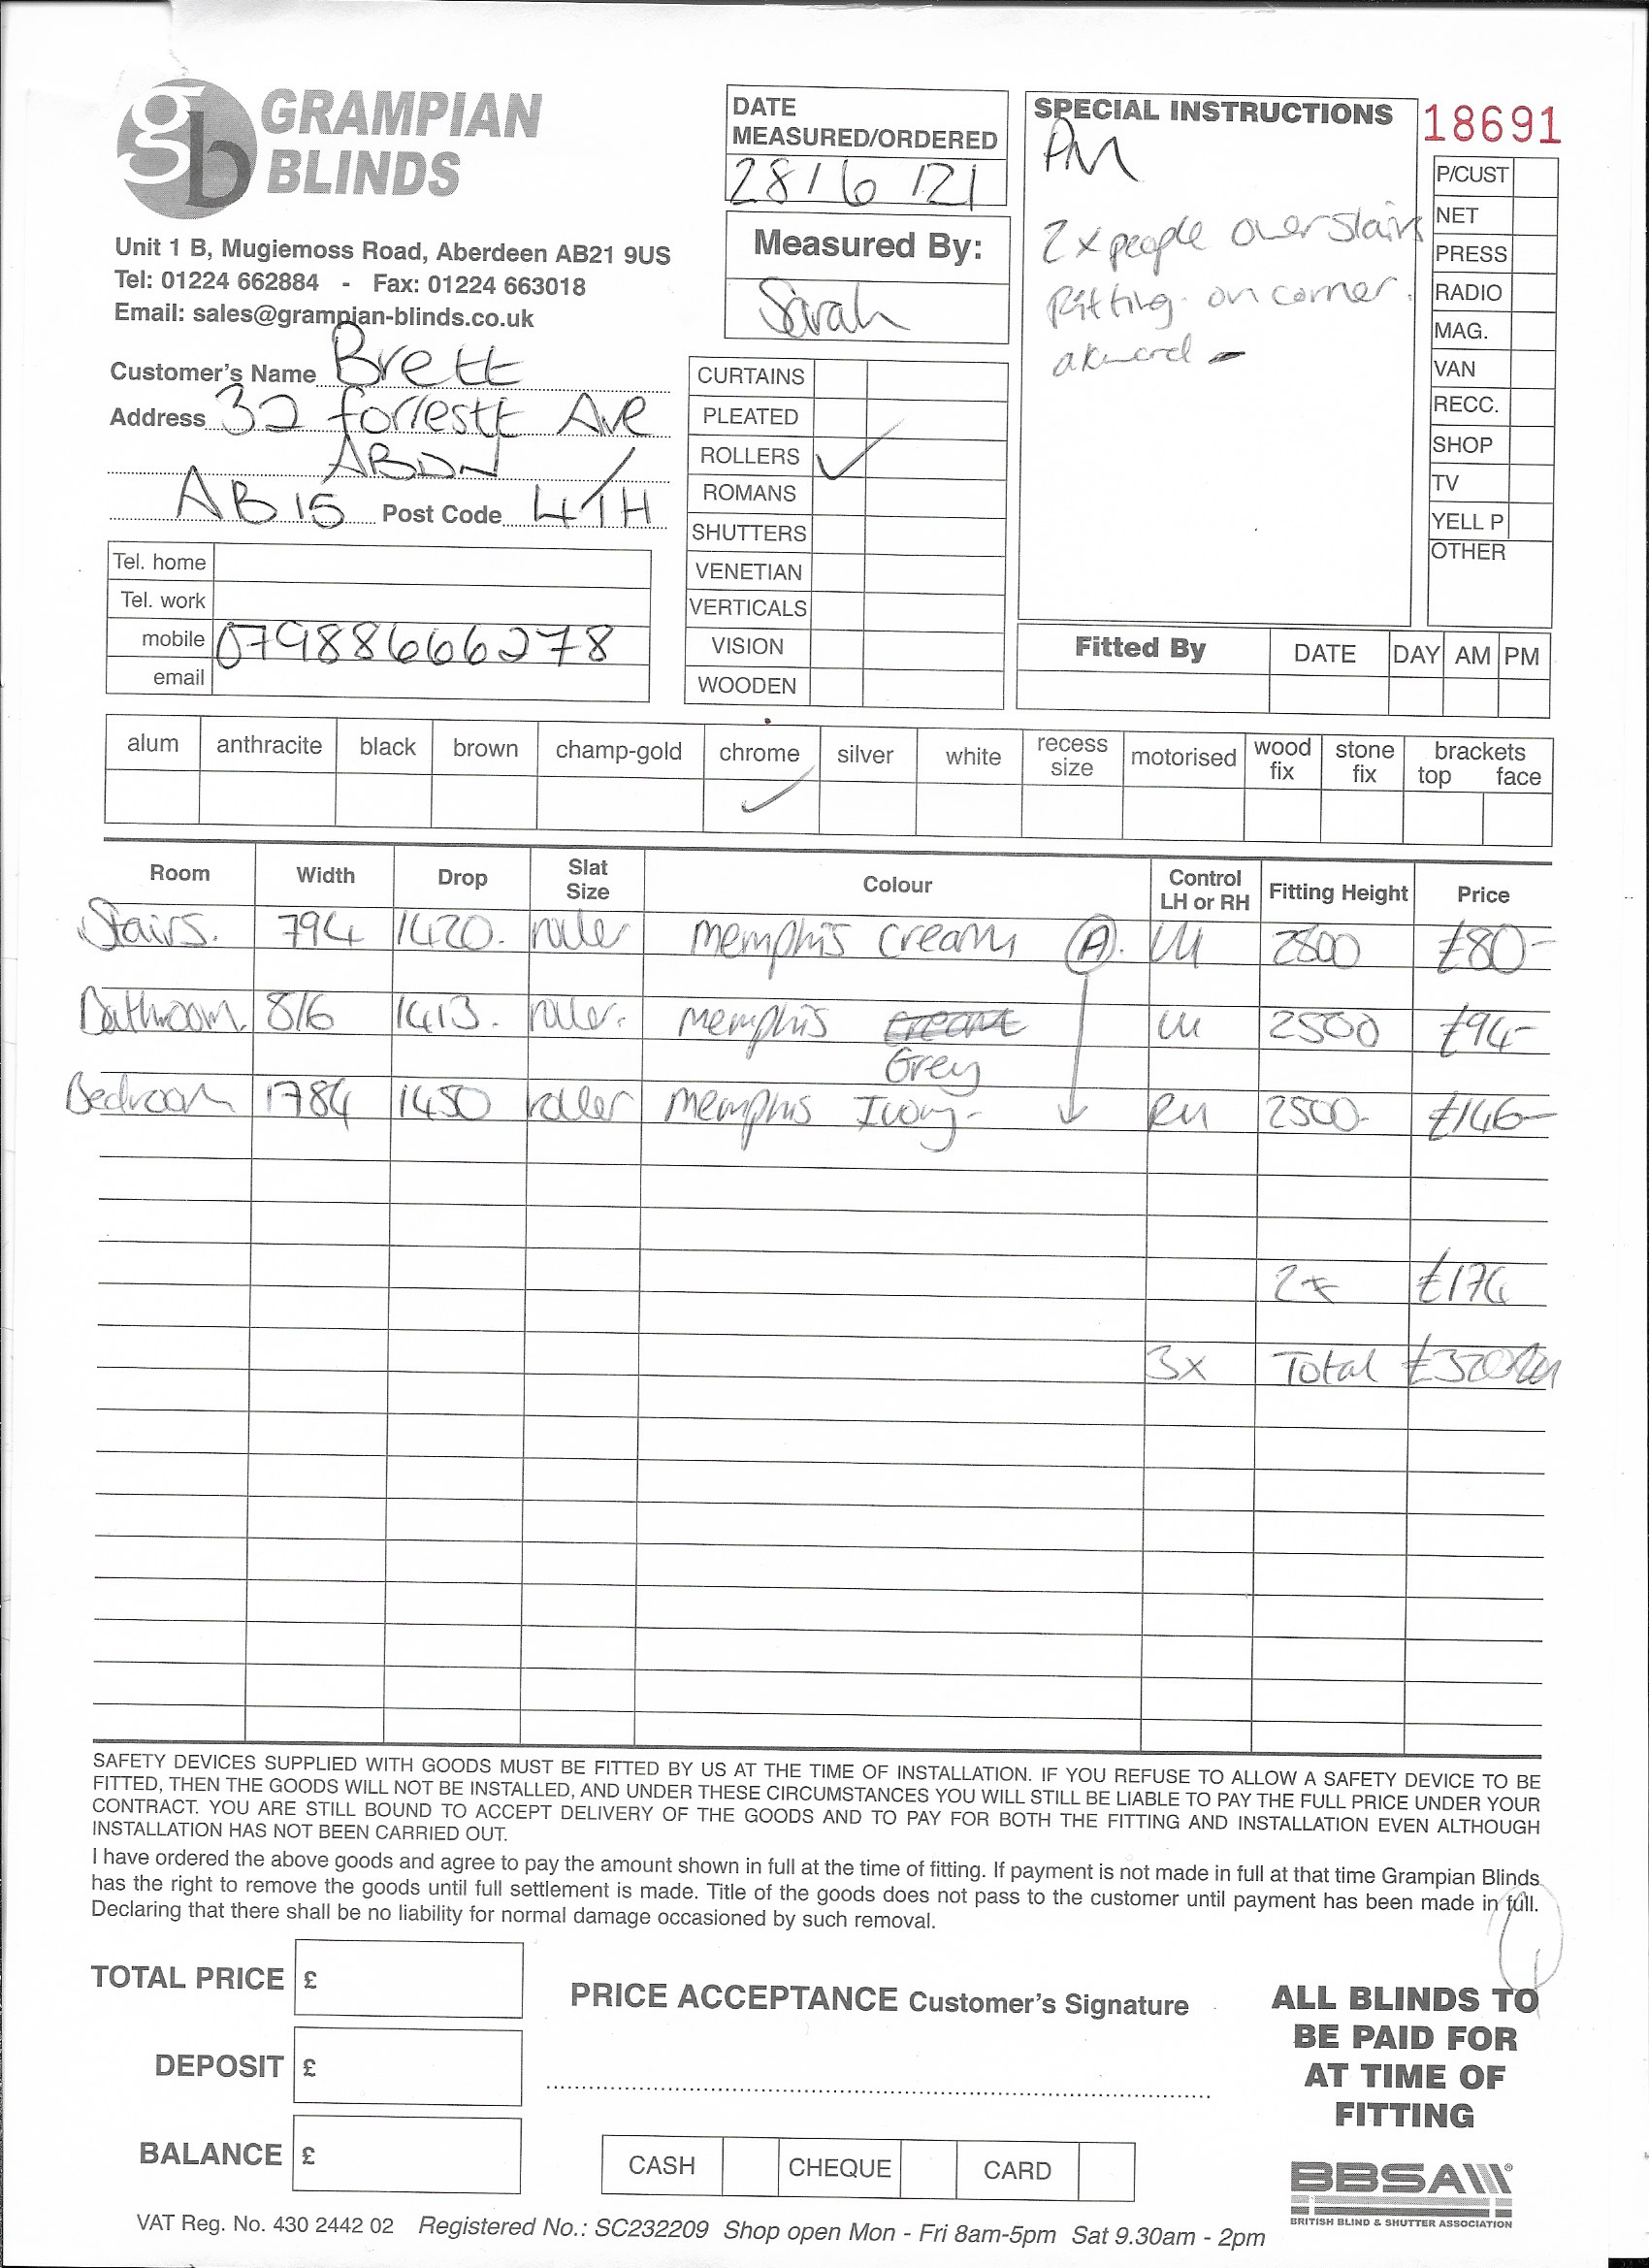 gb GRAMPIAN
BLINDS
Unit 1 B, Mugiemoss Road, Aberdeen AB21 9US
Tel: 01224 662884 - Fax: 01224 663018
Email: sales@grampian-blinds.co.uk
Customer's Name Brett
Address 32 forrestt Ave
ABDN
AB15 Post Code 4TH
Tel. home
Tel. work
mobile 07988666278
email
DATE
MEASURED/ORDERED
28/6/21
Measured By:
Sarah
CURTAINS
PLEATED
ROLLERS ✓
ROMANS
SHUTTERS
VENETIAN
VERTICALS
VISION
WOODEN
SPECIAL INSTRUCTIONS
PM
2x people over stairs
fitting. on corner.
akward -
18691
P/CUST
NET
PRESS
RADIO
MAG.
VAN
RECC.
SHOP
TV
YELL P
OTHER
Fitted By DATE DAY AM PM
alum anthracite black brown champ-gold chrome silver white recess size motorised wood fix stone fix brackets top face
✓
Room Width Drop Slat Size Colour Control LH or RH Fitting Height Price
Stairs. 794 1420. roller memphis cream A. LH 2800 £80-
Bathroom. 816 1413. roller. memphis LH 2500 £94-
Grey
Bedroom 1784 1450 roller memphis Ivory- RH 2500- £146-
2x £174
3x Total £320
SAFETY DEVICES SUPPLIED WITH GOODS MUST BE FITTED BY US AT THE TIME OF INSTALLATION. IF YOU REFUSE TO ALLOW A SAFETY DEVICE TO BE
FITTED, THEN THE GOODS WILL NOT BE INSTALLED, AND UNDER THESE CIRCUMSTANCES YOU WILL STILL BE LIABLE TO PAY THE FULL PRICE UNDER YOUR
CONTRACT. YOU ARE STILL BOUND TO ACCEPT DELIVERY OF THE GOODS AND TO PAY FOR BOTH THE FITTING AND INSTALLATION EVEN ALTHOUGH
INSTALLATION HAS NOT BEEN CARRIED OUT.
I have ordered the above goods and agree to pay the amount shown in full at the time of fitting. If payment is not made in full at that time Grampian Blinds
has the right to remove the goods until full settlement is made. Title of the goods does not pass to the customer until payment has been made in full.
Declaring that there shall be no liability for normal damage occasioned by such removal.
TOTAL PRICE £
DEPOSIT £
BALANCE £
PRICE ACCEPTANCE Customer's Signature
CASH CHEQUE CARD
ALL BLINDS TO
BE PAID FOR
AT TIME OF
FITTING
BBSA
BRITISH BLIND & SHUTTER ASSOCIATION
VAT Reg. No. 430 2442 02 Registered No.: SC232209 Shop open Mon - Fri 8am-5pm Sat 9.30am - 2pm